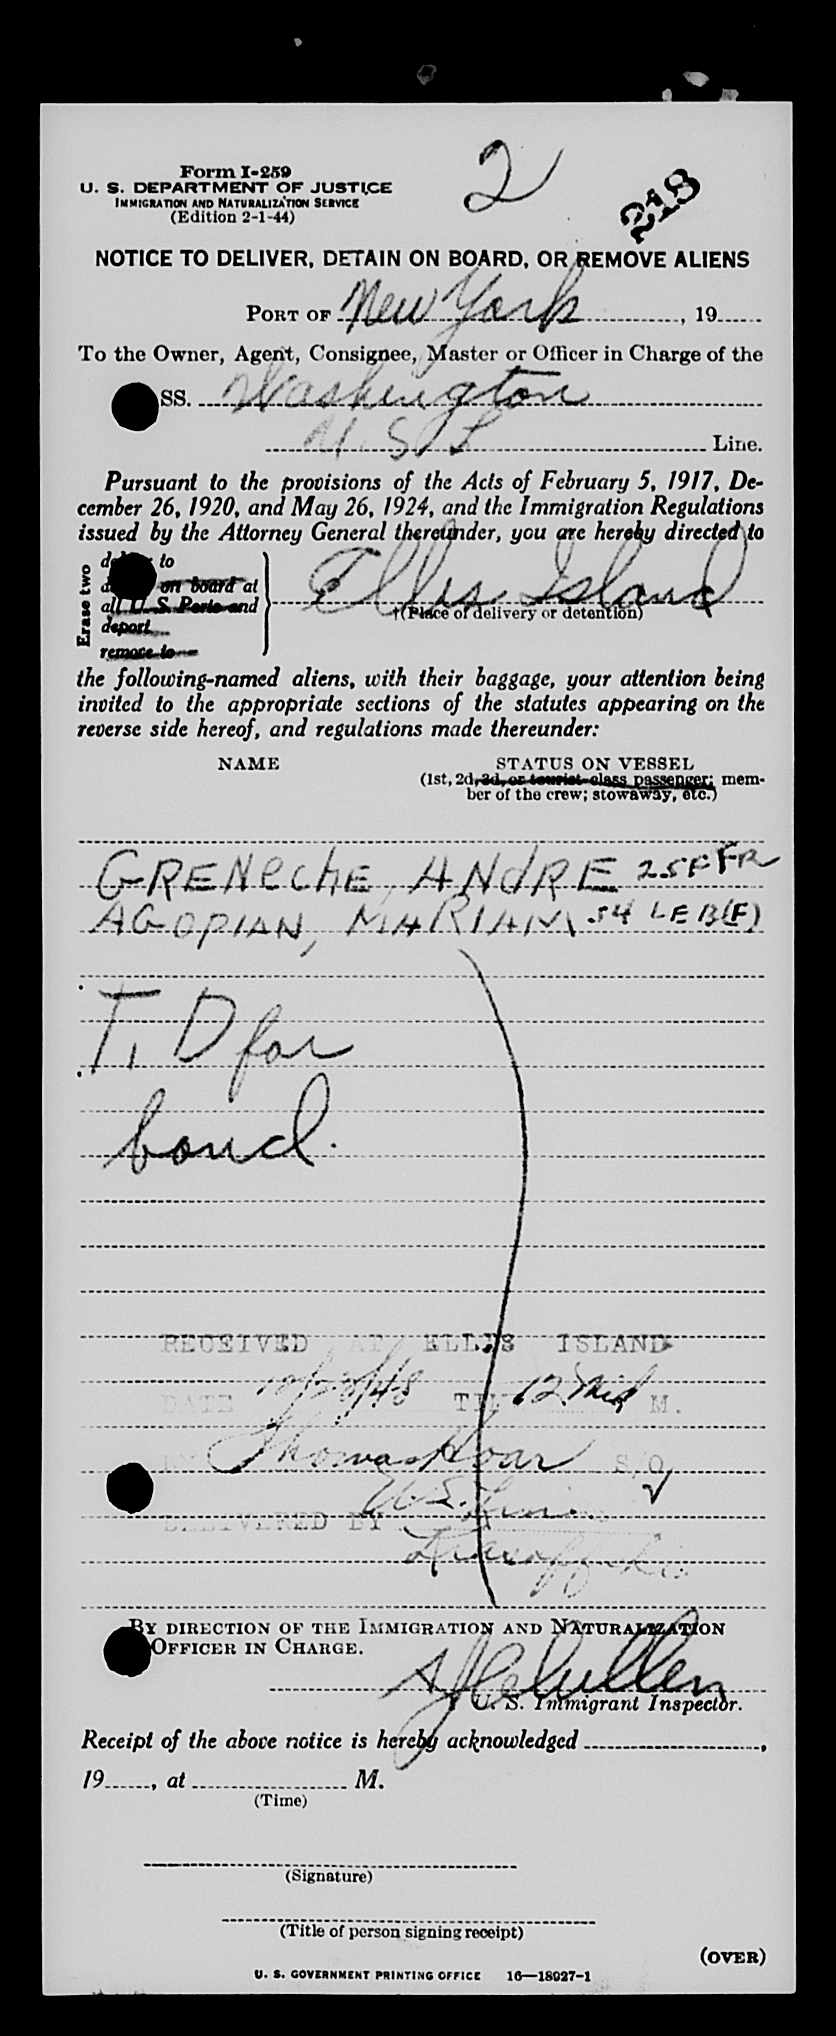 Form I-259
2
218
U. S. DEPARTMENT OF JUSTICE
IMMIGRATION AND NATURALIZATION SERVICE
(Edition 2-1-44)
NOTICE TO DELIVER, DETAIN ON BOARD, OR REMOVE ALIENS
PORT OF New York, 19
To the Owner, Agent, Consignee, Master or Officer in Charge of the
SS. Washington
U.S. L Line.
Pursuant to the provisions of the Acts of February 5, 1917, De-
cember 26, 1920, and May 26, 1924, and the Immigration Regulations
issued by the Attorney General thereunder, you are hereby directed to
Erase two
to
on board at
all U. S. Ports and
deport
remove to
Ellis Island
†(Place of delivery or detention)
the following-named aliens, with their baggage, your attention being
invited to the appropriate sections of the statutes appearing on the
reverse side hereof, and regulations made thereunder:
NAME STATUS ON VESSEL
(1st, 2d, 3d, or tourist-class passenger; mem-
ber of the crew; stowaway, etc.)
GRENECHE, ANDRE 25F FR
AGOPIAN, MARIAM 54 LEB(F)
T. D for
bond.
RECEIVED AT ELLIS ISLAND
DATE 12/23/48 12 Mid M.
Thomas Hoar S/O
U.S. Lines
DELIVERED BY
BY DIRECTION OF THE IMMIGRATION AND NATURALIZATION
OFFICER IN CHARGE.
U. S. Immigrant Inspector.
Receipt of the above notice is hereby acknowledged ,
19 , at M.
(Time)
(Signature)
(Title of person signing receipt)
(OVER)
U. S. GOVERNMENT PRINTING OFFICE 16—18927-1